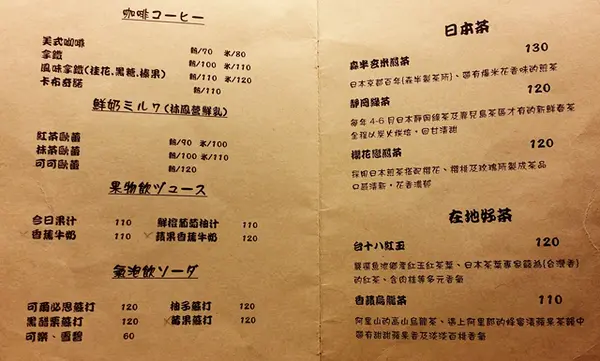 咖啡コーヒー
美式咖啡 熱/70 氷/80
拿鐵 熱/100 氷/110
風味拿鐵(桂花.黑糖.榛果) 熱/110 氷/120
卡布奇諾 熱/110
鮮奶ミルク(林鳳營鮮乳)
紅茶歐蕾 熱/90 氷/100
抹茶歐蕾 熱/100 氷/110
可可歐蕾 熱/120
果物飲ジュース
今日果汁 110
鮮橙葡萄柚汁 110
香蕉牛奶 110
蘋果香蕉牛奶 120
氣泡飲ソーダ
可爾必思蘇打 120
柚子蘇打 120
黑醋栗蘇打 120
莓果蘇打 120
可樂、雪碧 60
日本茶
森半玄米煎茶 130
日本京都百年(森半製茶所)、帶有爆米花香味的煎茶
靜岡綠茶 120
每年4-6月日本靜岡綠茶及鹿兒島茶區才有的新鮮春茶
全程以炭火烘焙,回甘清甜
櫻花戀煎茶 120
採用日本煎茶搭配櫻花、櫻桃及玫瑰所製成茶品
口感清新,花香濃郁
在地好茶
台十八紅玉 120
嚴選魚池鄉產紅玉紅茶葉、日本茶葉專家譽為(台灣香)
的紅茶、含肉桂等多元香氣
香蘋烏龍茶 110
阿里山的高山烏龍茶、遇上阿里郎的蜂蜜漬蘋果茶韻中
帶有甜甜蘋果香及淡淡百桃香氣